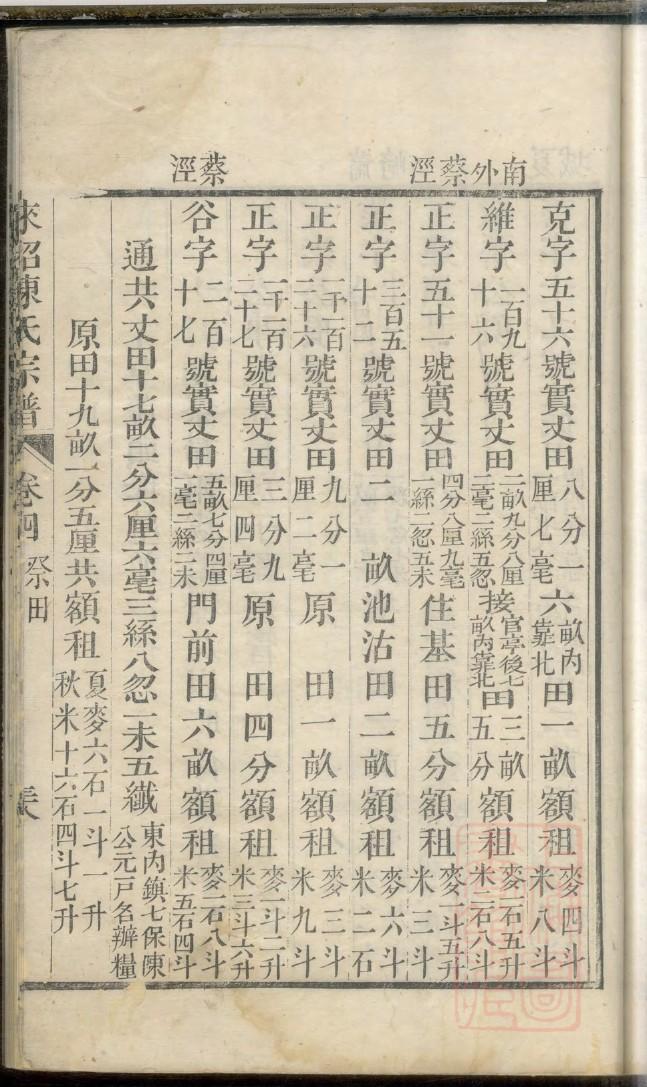 南外蔡涇
蔡涇
克字五十六號實丈田八分一厘七毫六畝內靠北田一畝額租麥四斗米八斗
維字一百九十六號實丈田二畝九分八厘二毫二絲五忽接官亭後七畝內靠北田三畝五分額租麥一石五升米二石八斗
正字五十一號實丈田四分八厘九毫一絲二忽五未住基田五分額租麥一斗五升米三斗
正字三百五十二號實丈田二畝池沽田二畝額租麥六斗米二石
正字一千一百二十六號實丈田九分一厘二毫原田一畝額租麥三斗米九斗
正字一千一百二十七號實丈田三分九厘四毫原田四分額租麥一斗二升米三斗六升
谷字二百十七號實丈田五畝七分四厘一毫二絲二未門前田六畝額租麥一石八斗米五石四斗
通共丈田十七畝二分六厘六毫三絲八忽一未五纖東內鎮七保陳公元戸名辦糧
原田十九畝一分五厘共額租夏麥六石一斗一升秋米十六石四斗七升
來紹陳氏宗譜 卷四 祭田